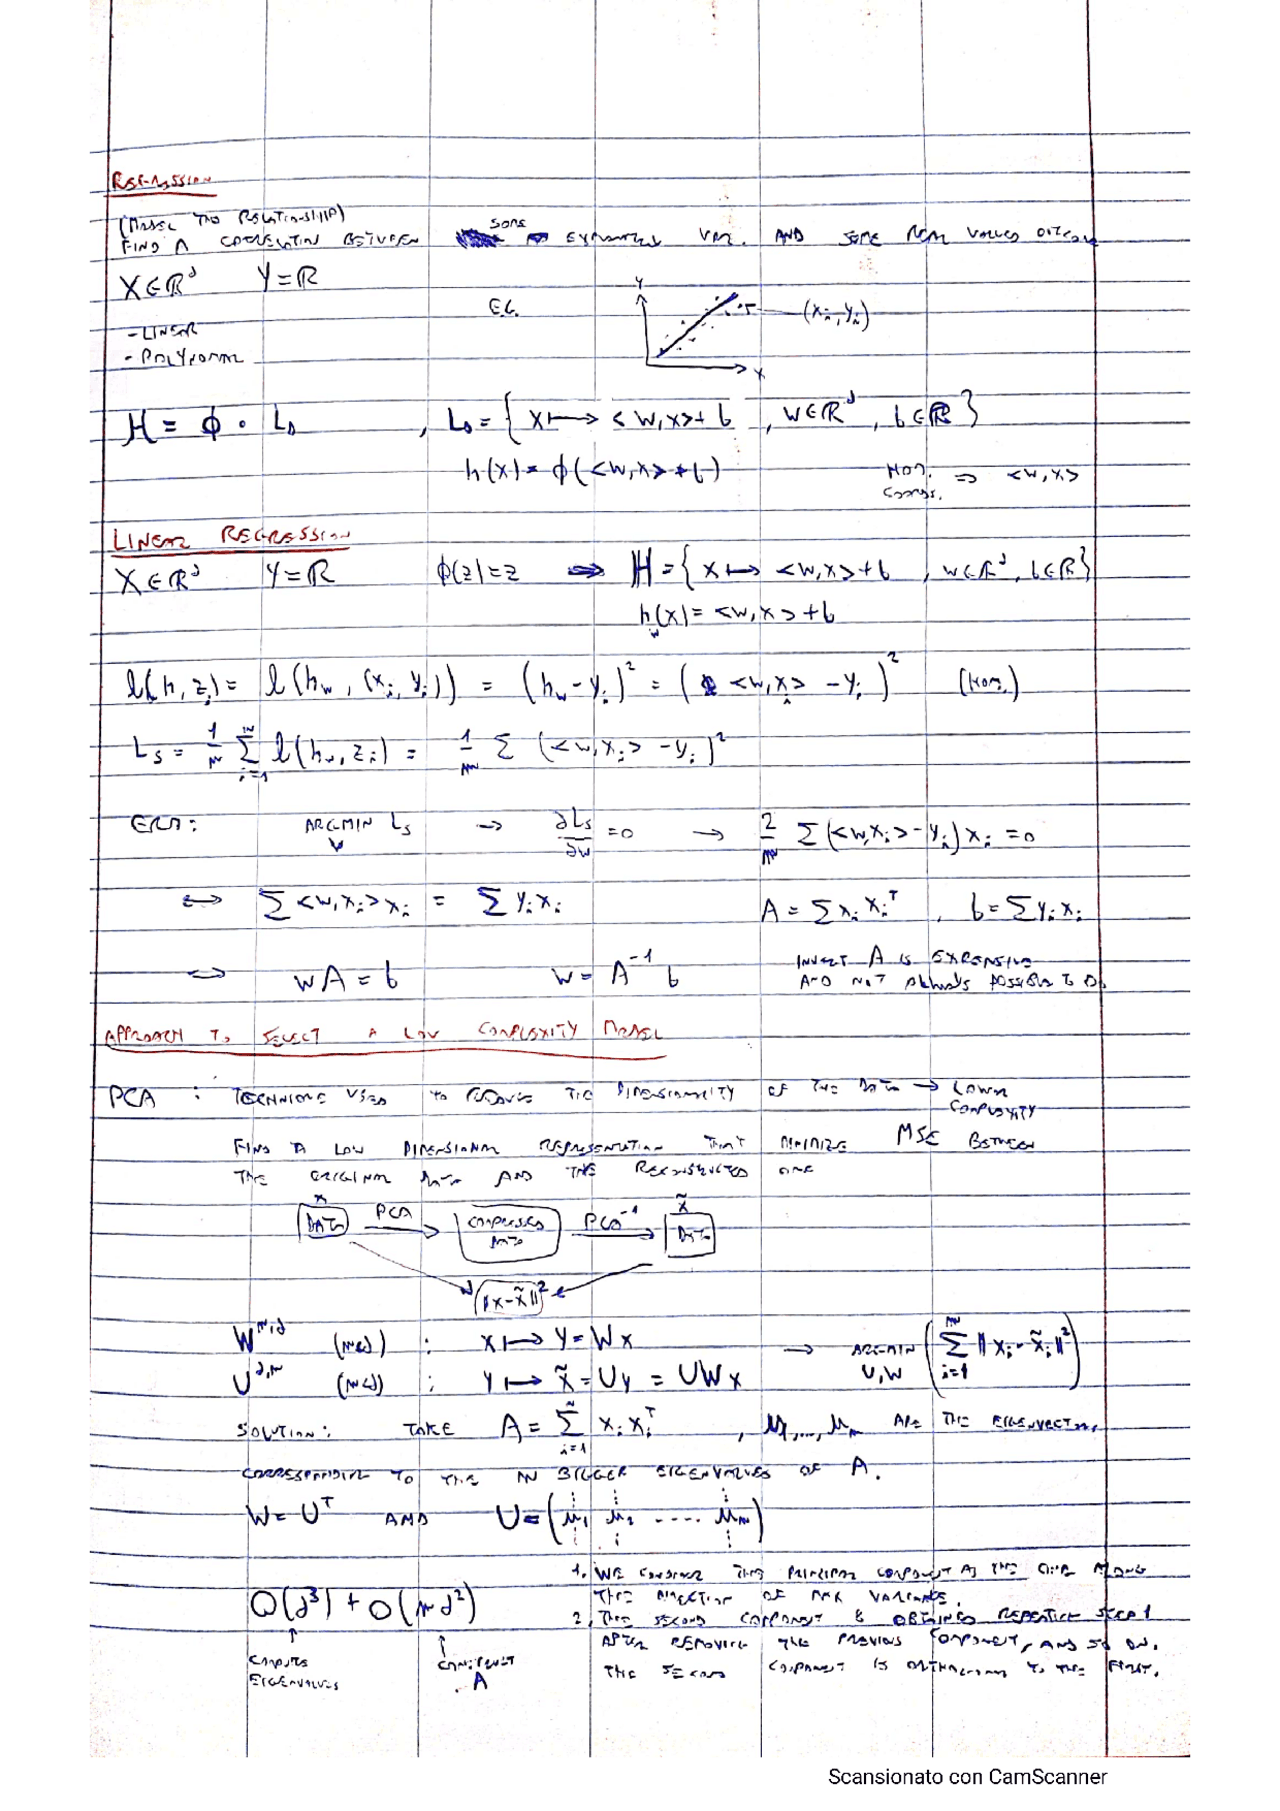 REGRESSION
(MODEL THE RELATIONSHIP)
FIND A CORRELATION BETWEEN SOME EXPLANATORY VAR. AND SOME REAL VALUED OUTCOME
X ∈ ℝᵈ Y = ℝ
- LINEAR
- POLYNOMIAL
E.G. Y X (xᵢ, yᵢ)
H = ϕ ∘ L_D , L_D = { x ⟼ <w,x> + b , w ∈ ℝᵈ , b ∈ ℝ }
h(x) = ϕ(<w,x> + b) HOM. COORDS. ⇒ <w,x>
LINEAR REGRESSION
X ∈ ℝᵈ Y = ℝ ϕ(z) = z ⇒ H = { x ⟼ <w,x> + b , w ∈ ℝᵈ, b ∈ ℝ }
h_w(x) = <w,x> + b
l(h, zᵢ) = l(h_w, (xᵢ, yᵢ)) = (h_w - yᵢ)² = (<w,xᵢ> - yᵢ)² (HOM.)
L_S = 1/m Σ_{i=1}^m l(h_w, zᵢ) = 1/m Σ (<w,xᵢ> - yᵢ)²
ERM: ARGMIN_w L_S → ∂L_S/∂w = 0 → 2/m Σ (<w,xᵢ> - yᵢ) xᵢ = 0
⟺ Σ <w,xᵢ> xᵢ = Σ yᵢ xᵢ A = Σ xᵢ xᵢᵀ , b = Σ yᵢ xᵢ
⟺ wA = b w = A⁻¹ b INVERT A IS EXPENSIVE
AND NOT ALWAYS POSSIBLE TO DO
APPROACH TO SELECT A LOW COMPLEXITY MODEL
PCA : TECHNIQUE USED TO REDUCE THE DIMENSIONALITY OF THE DATA → LOWER COMPLEXITY
FIND A LOW DIMENSIONAL REPRESENTATION THAT MINIMIZE MSE BETWEEN
THE ORIGINAL DATA AND THE RECONSTRUCTED ONE
x DATA PCA → COMPRESSED DATA PCA⁻¹ → x̃ DATA
||x - x̃||²
W^{n,d} (n<d) : x ⟼ y = Wx → ARGMIN_{U,W} ( Σ_{i=1}^m ||xᵢ - x̃ᵢ||² )
U^{d,n} (n<d) : y ⟼ x̃ = Uy = UWx
SOLUTION: TAKE A = Σ_{i=1}^m xᵢ xᵢᵀ , u₁, ..., uₙ ARE THE EIGENVECTORS
CORRESPONDING TO THE n BIGGER EIGENVALUES OF A.
W = Uᵀ AND U = ( u₁ u₂ .... uₙ )
1. WE CONSIDER THE PRINCIPAL COMPONENT AS THE ONE ALONG
THE DIRECTION OF MAX VARIANCE.
O(d³) + O(md²)
2. THE SECOND COMPONENT IS OBTAINED REPEATING STEP 1
AFTER REMOVING THE PREVIOUS COMPONENT, AND SO ON.
COMPUTE EIGENVALUES CONSTRUCT A
THE SECOND COMPONENT IS ORTHOGONAL TO THE FIRST.
Scansionato con CamScanner